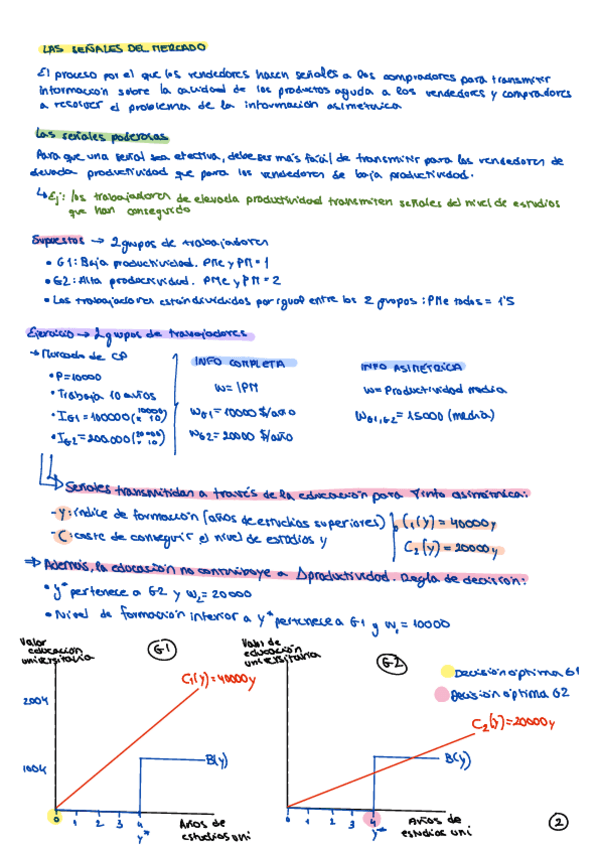 LAS SEÑALES DEL MERCADO
El proceso por el que los vendedores hacen señales a los compradores para transmitir
información sobre la calidad de los productos ayuda a los vendedores y compradores
a resolver el problema de la información asimétrica
Las señales poderosas
Para que una señal sea efectiva, debe ser más fácil de transmitir para los vendedores de
elevada productividad que para los vendedores de baja productividad.
↳ Ej: los trabajadores de elevada productividad transmiten señales del nivel de estudios
que han conseguido
Supuestos → 2 grupos de trabajadores
• G1: Baja productividad. PMe y PM = 1
• G2: Alta productividad. PMe y PM = 2
• Los trabajadores están divididos por igual entre los 2 grupos: PMe todos = 1'5
Ejercicio → 2 grupos de trabajadores
→ Mercado de CP
• P=10000
• Trabaja 10 años
• IG1 = 100000 (10000 x 10)
• IG2 = 200.000 (20000 x 10)
INFO COMPLETA
w = IPM
wG1 = 10000 $/año
wG2 = 20000 $/año
INFO ASIMÉTRICA
w = Productividad media
wG1,G2 = 15000 (media)
↳ Señales transmitidas a través de la educación para ↑info asimétrica:
- y: índice de formación (años de estudios superiores)
- C: coste de conseguir el nivel de estudios y
C1(y) = 40000y
C2(y) = 20000y
⇒ Además, la educación no contribuye a Δproductividad. Regla de decisión:
• y* pertenece a G2 y w2 = 20000
• Nivel de formación inferior a y* pertenece a G1 y w1 = 10000
Valor
educación
universitaria
G1
C1(y) = 40000y
200k
100k
B(y)
0 1 2 3 4
y*
Años de
estudios uni
Valor de
educación
universitaria
G2
Decisión óptima G1
Decisión óptima G2
C2(y) = 20000y
B(y)
0 1 2 3 4
y*
Años de
estudios uni
2